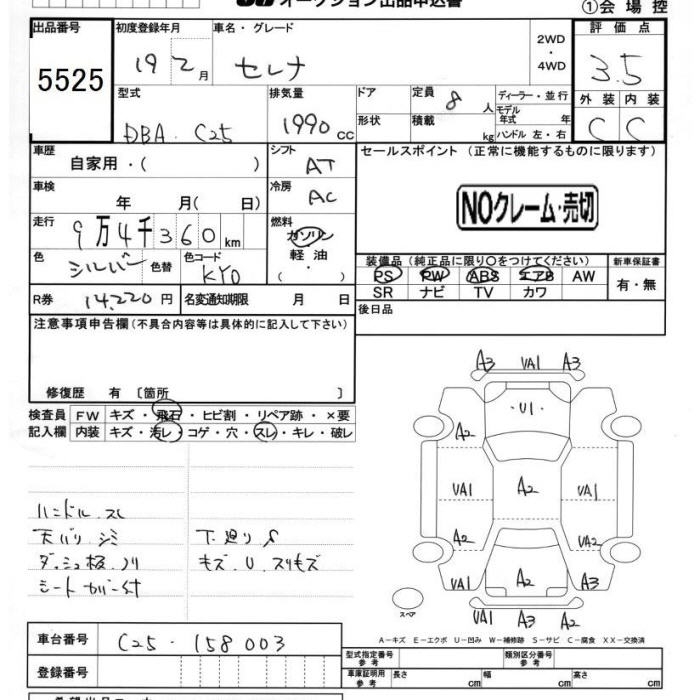 オークション出品申込書
①会場控
出品番号 初度登録年月 車名・グレード 評価点
5525 19 2月 セレナ 2WD・4WD 3.5
型式 排気量 ドア 定員 8人 ディーラー・並行 外装 内装
DBA・C25 1990cc 形状 積載 kg モデル年式 年 ハンドル 左・右 C C
車歴 自家用・( ) シフト AT セールスポイント (正常に機能するものに限ります)
車検 年 月( 日) 冷房 AC
NOクレーム・売切
走行 9万4千360km 燃料 ガソリン 軽油 ・( )
色 シルバー 色替 色コード KY0
装備品(純正品に限り○をつけてください) 新車保証書
PS PW ABS エアB AW 有・無
SR ナビ TV カワ
R券 14,220円 名変通知期限 月 日 後日品
注意事項申告欄(不具合内容等は具体的に記入して下さい)
修復歴 有 〔箇所 〕
検査員 FW キズ・飛石・ヒビ割・リペア跡・×要
記入欄 内装 キズ・汚レ・コゲ・穴・スレ・キレ・破レ
ハンドル.スレ
天バリ.シミ
ダッシュ板.ノリ
シートカバー付
下廻りS
キズ.U.スリキズ
A3 VA1 A3
・U1
A2
VA1 A2 VA1
A2 VA2
VA1 A2 A3
VA1 A3 A2
スペア
A-キズ E-エクボ U-凹み W-補修跡 S-サビ C-腐食 XX-交換済
車台番号 C25-158003
登録番号
型式指定番号 参考 類別区分番号 参考
車庫証明用 参考 長さ cm 幅 cm 高さ cm